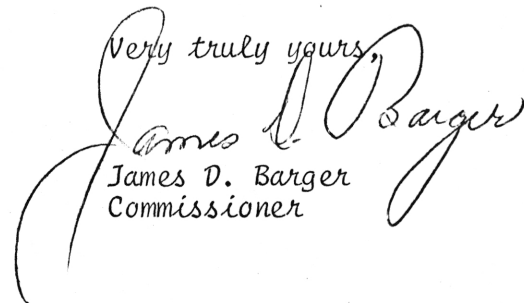 Very truly yours,
James D. Barger
James D. Barger
Commissioner